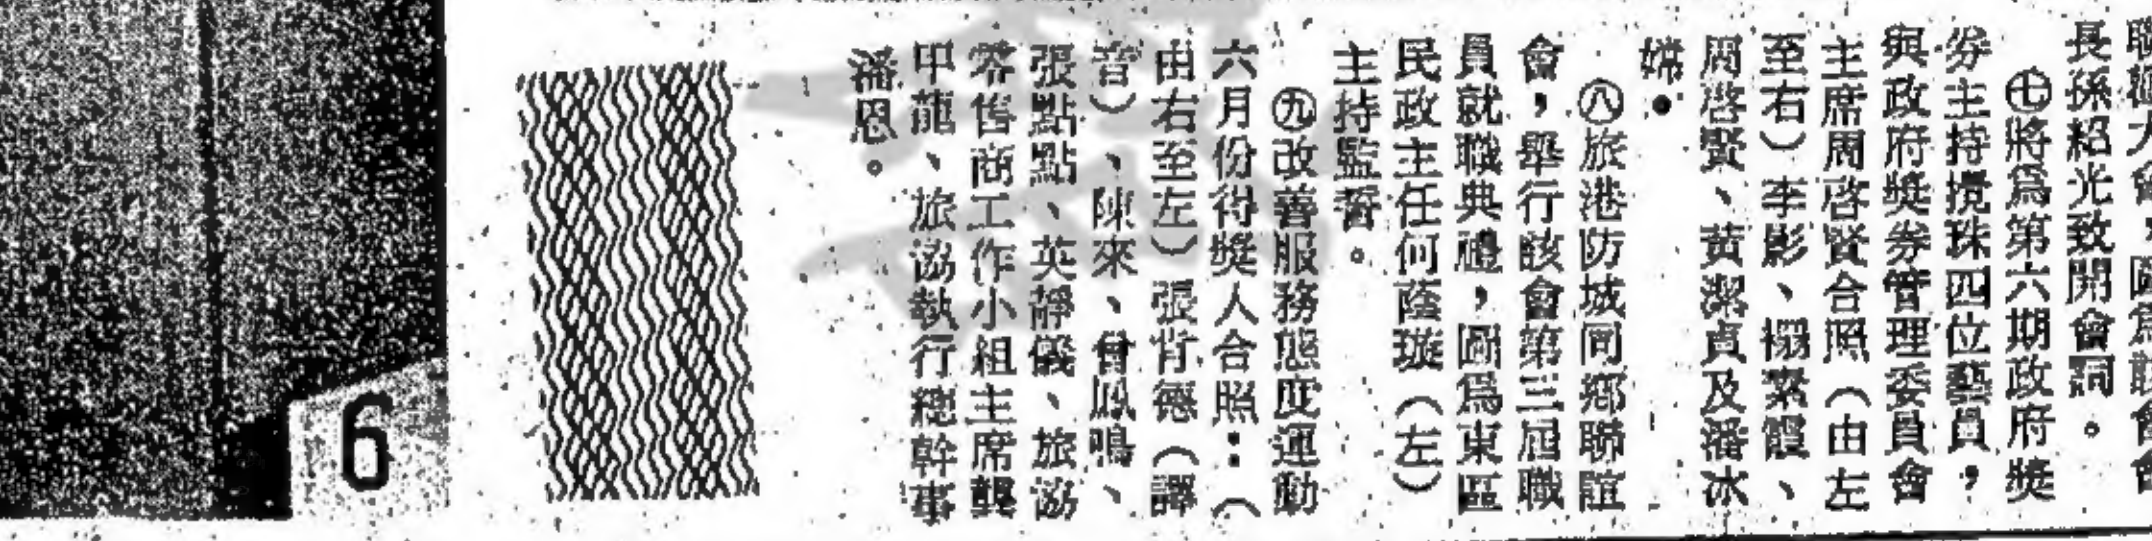 長孫紹光致開會詞。
㊆將爲第六期政府獎
券主持攪珠四位藝員，
與政府獎券管理委員會
主席周啓賢合照（由左
至右）李影、楊霞、
周啓賢、黃潔貞及潘冰
嫦。
㊇旅港防城同鄉聯誼
會，舉行該會第三屆職
員就職典禮，圖爲東區
民政主任何蔭璇（左）
主持監誓。
㊈改善服務態度運動
六月份得獎人合照：（
由右至左）張肯德（譯
音）、陳來、曾鳳鳴、
張點點、英靜儀、旅協
零售商工作小組主席龔
甲龍、旅協執行總幹事
潘恩。
6